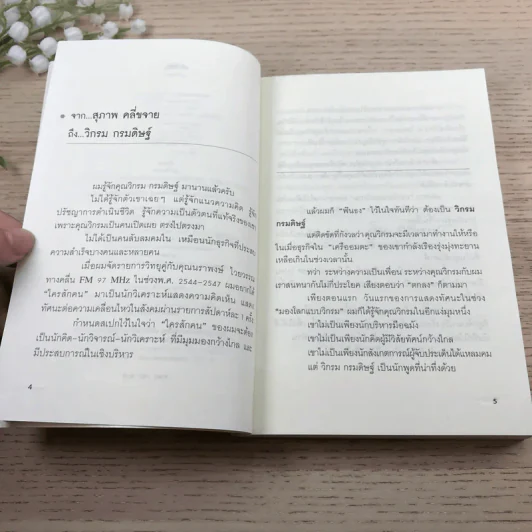 จาก...สุภาพ คลี่ขจาย
ถึง...วิกรม กรมดิษฐ์
ผมรู้จักคุณวิกรม กรมดิษฐ์ มานานแล้วครับ
ไม่ได้รู้จักตัวเขาเฉยๆ แต่รู้จักแนวความคิด รู้จัก
ปรัชญาการดำเนินชีวิต รู้จักความเป็นตัวตนที่แท้จริงของเขา
เพราะคุณวิกรมเป็นคนเปิดเผย ตรงไปตรงมา
ไม่ได้เป็นคนลับลมคมใน เหมือนนักธุรกิจที่ประสบ
ความสำเร็จบางคนและหลายคน
เมื่อผมจัดรายการวิทยุคู่กับคุณนราพงษ์
ทางคลื่น FM 97 MHz ในช่วงพ.ศ. 2544-2547 ผมอยากได้
"ใครสักคน" มาเป็นนักวิเคราะห์แสดงความคิดเห็น แสดง
ทัศนะต่อความเคลื่อนไหวในสังคมผ่านรายการสัปดาห์ละ 1 ครั้ง
กำหนดสเปกไว้ในใจว่า "ใครสักคน" ของผมจะต้อง
เป็นนักคิด-นักวิจารณ์-นักวิเคราะห์ ที่มีมุมมองกว้างไกล และ
มีประสบการณ์ในเชิงบริหาร
4
แล้วผมก็ "ฟันธง" ไว้ในใจทันทีว่า ต้องเป็น วิกรม
กรมดิษฐ์
แต่ติดขัดที่กังวลว่าคุณวิกรมจะมีเวลามาทำงานให้หรือ
ในเมื่อธุรกิจใน "เครืออมตะ" ของเขากำลังเรืองรุ่งพุ่งทะยาน
เหลือเกินในช่วงเวลานั้น
ทว่า ระหว่างความเป็นเพื่อน ระหว่างคุณวิกรมกับผม
เราสนทนากันไม่กี่ประโยค เสียงตอบว่า "ตกลง" ก็ตามมา
เพียงตอนแรก วันแรกของการแสดงทัศนะในช่วง
"มองโลกแบบวิกรม" ผมก็ได้รู้จักคุณวิกรมในอีกแง่มุมหนึ่ง
เขาไม่เป็นเพียงนักบริหารมือฉมัง
เขาไม่เป็นเพียงนักคิดผู้มีวิสัยทัศน์กว้างไกล
เขาไม่เป็นเพียงนักสังเกตการณ์ผู้จับประเด็นได้แหลมคม
แต่ วิกรม กรมดิษฐ์ เป็นนักพูดที่น่าทึ่งด้วย
5